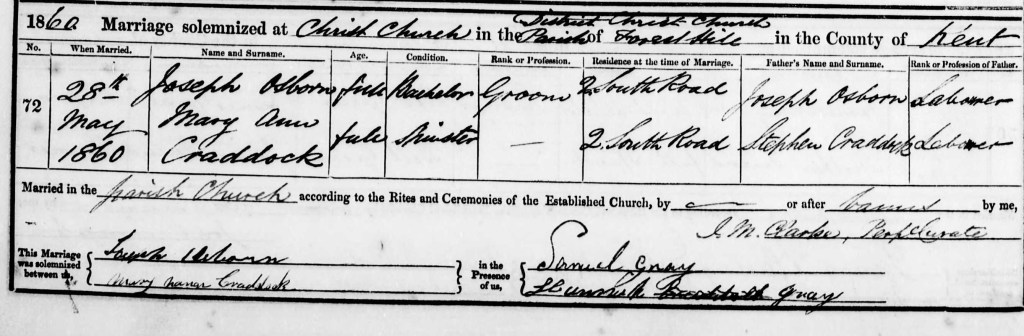 1860. Marriage solemnized at Christ Church in the District Christ Church Parish of Forest Hill in the County of Kent
No. When Married. Name and Surname. Age. Condition. Rank or Profession. Residence at the time of Marriage. Father's Name and Surname. Rank or Profession of Father.
72 28th May 1860 Joseph Osborn full Bachelor Groom 2 South Road Joseph Osborn Labourer
Mary Ann Craddock full Spinster — 2 South Road Stephen Craddock Labourer
Married in the Parish Church according to the Rites and Ceremonies of the Established Church, by — or after Banns by me,
J. M. Clarke, Perp. Curate
This Marriage was solemnized between us, Joseph Osborn
Craddock
in the Presence of us, Samuel Gray
Hannah Gray